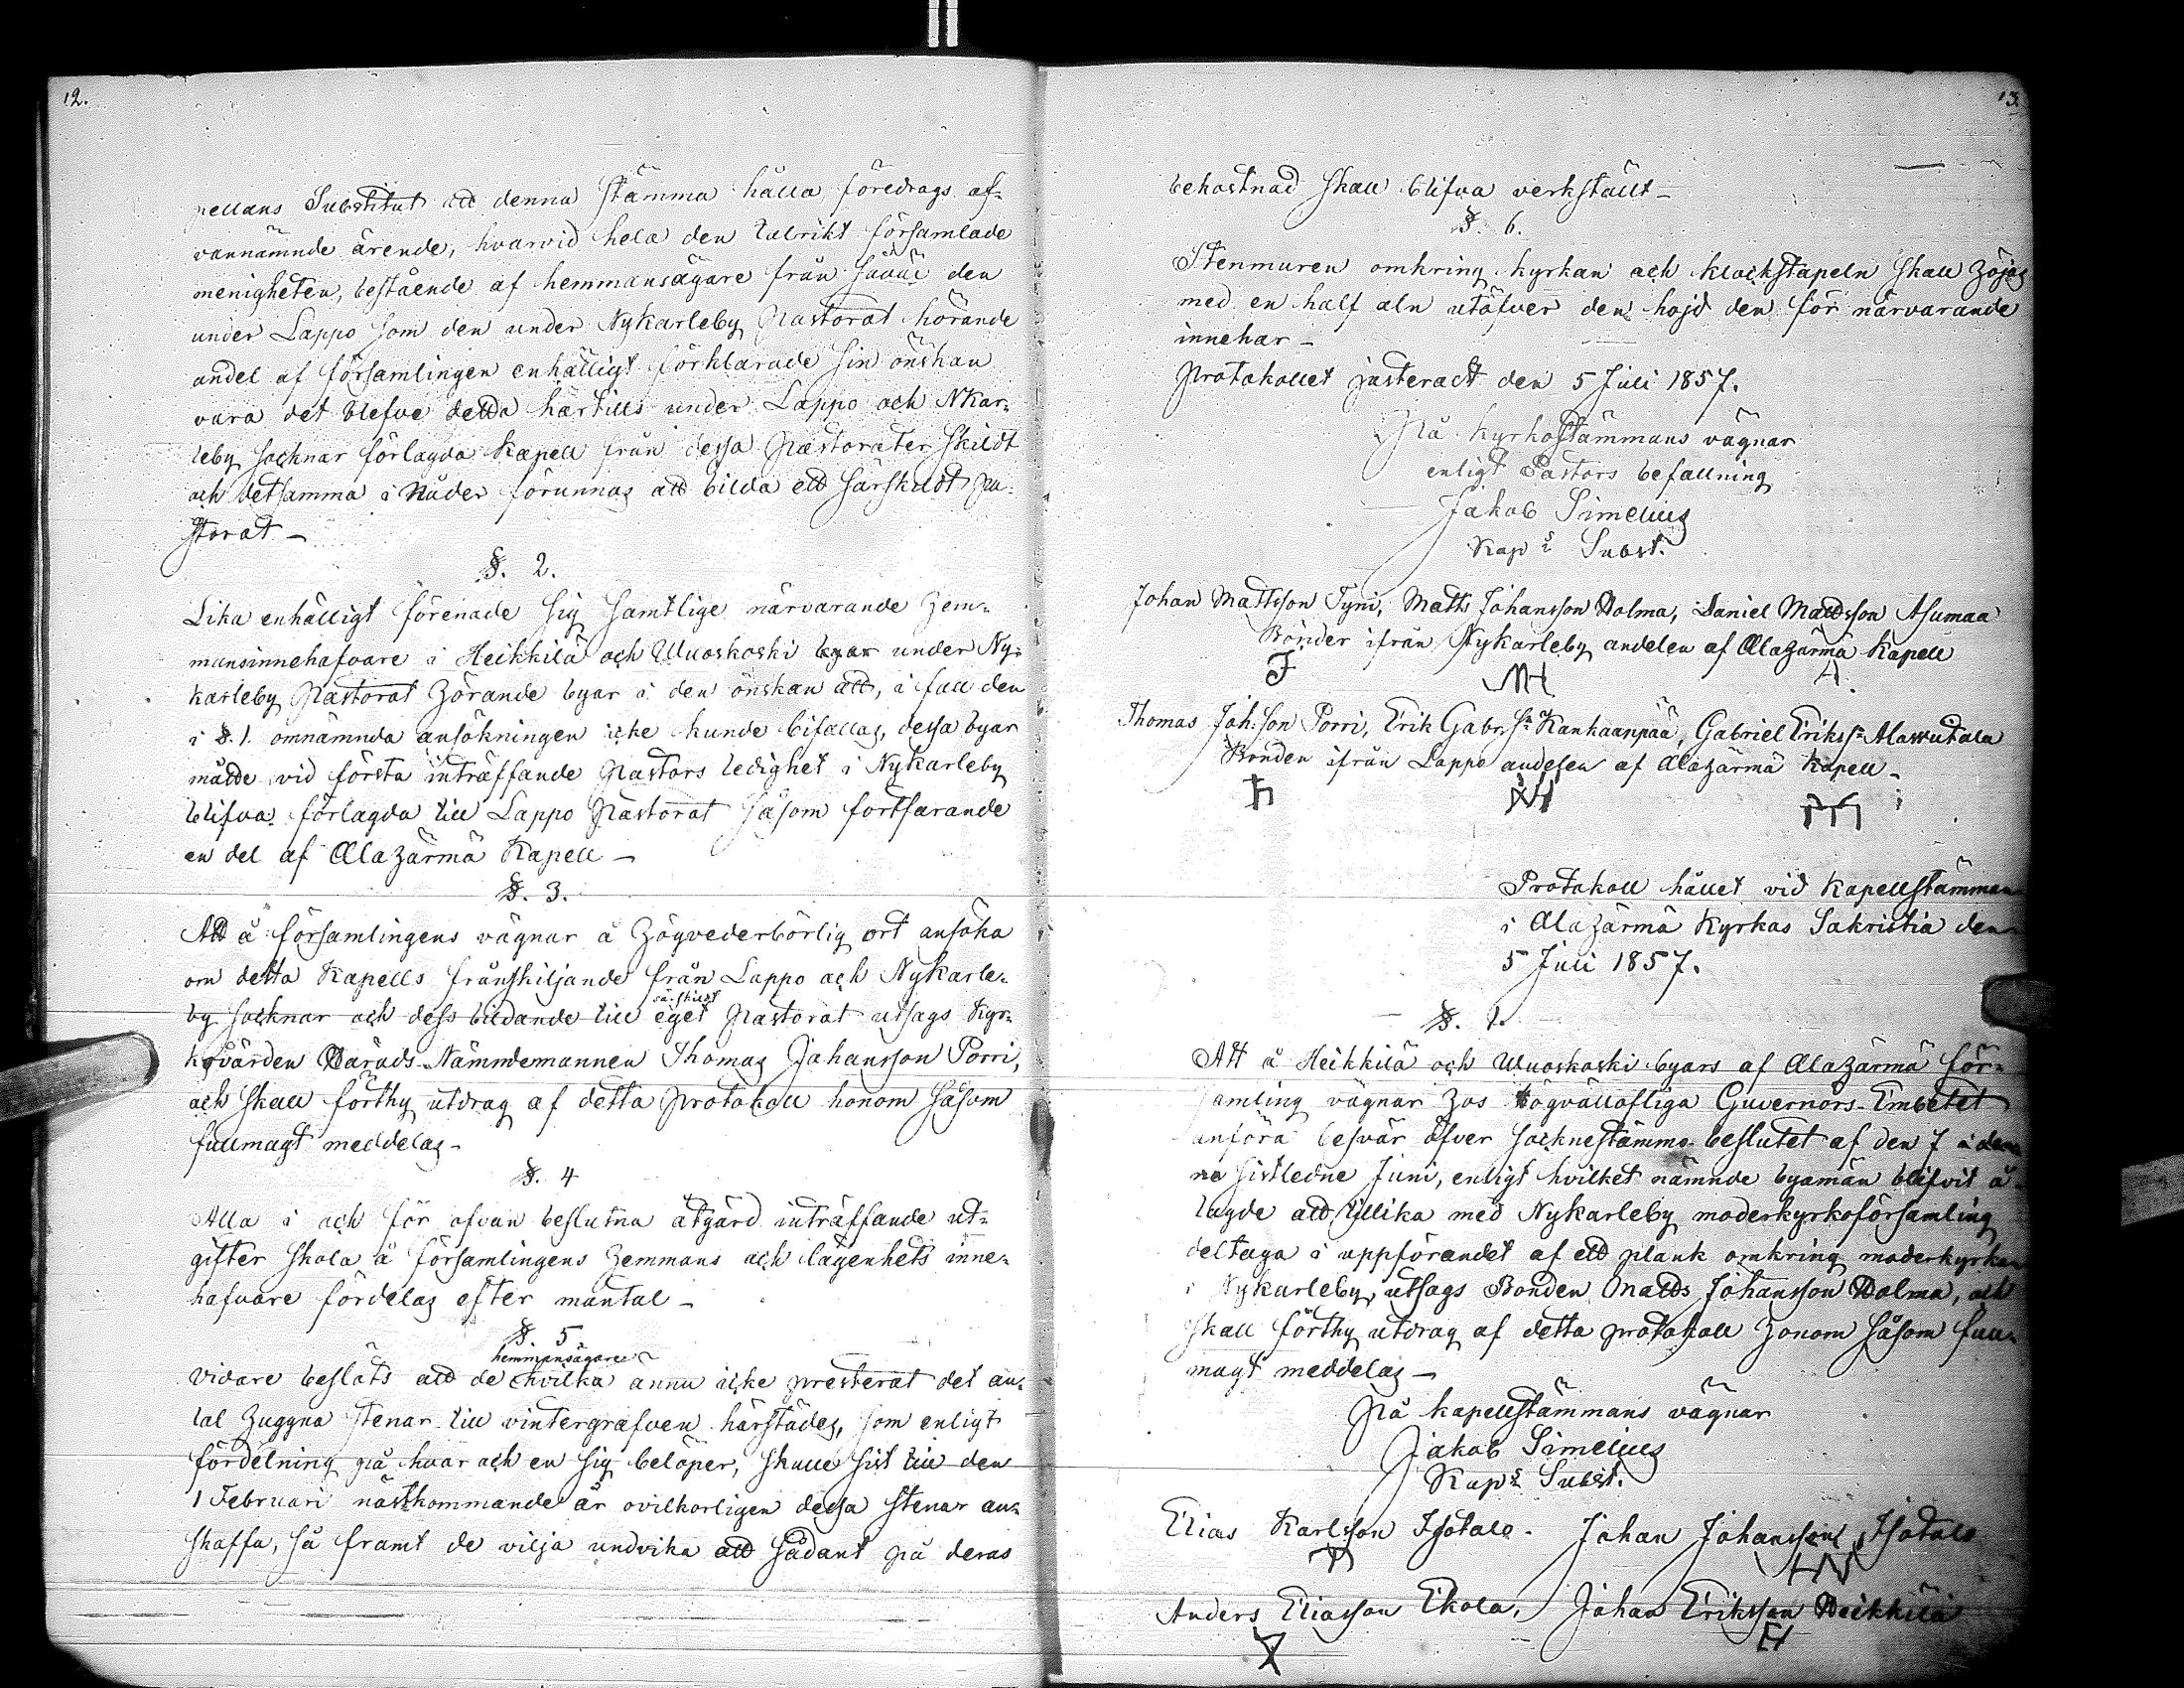 12.
pellans Substitut att denna stämma hålla, föredrogs of-
vannämnde ärende, hvarvid hela den talrikt församlade
menigheten, bestående af hemmansägare från såväl den
under Lappo som den under Nykarleby Pastorat hörande
andel af församlingen enhälligt förklarade sin önskan
vara det blefve detta härtills under Lappo och Nkar-
leby socknar förlagda Kapell från dessa Pastorater skildt
och detsamma i Nåder förunnas att bilda ett särskildt Pa-
storat –
§. 2.
Lika enhälligt förenade sig samtlige närvarande hem-
mansinnehafvare i Heikkilä och Wuoskoski byar under Ny-
karleby Pastorat hörande byar i den önskan att, i fall den
i §. 1. omnämnda ansökningen icke kunde bifallas, dessa byar
måtte vid första inträffande Pastors ledighet i Nykarleby
blifva förlagda till Lappo Pastorat såsom fortfarande
en del af Alahärmä Kapell –
§. 3.
Att å församlingens vägnar å högvederbörlig ort ansöka
om detta Kapells frånskiljande från Lappo och Nykarle-
särskildt
by socknar och dess bildande till eget Pastorat utsågs Kyr-
kovärden Härads-Nämndemannen Thomas Johansson Porri,
och skall förthy utdrag af detta protokoll honom såsom
fullmagt meddelas –
§. 4
Alla i och för ofvan beslutna åtgärd inträffande ut-
gifter skola å församlingens hemmans och lägenhets inne-
hafvare fördelas efter mantal –
§. 5.
hemmansägare
Vidare beslöts att de hvilka ännu icke presterat det an-
tal huggna stenar till vintergrafven härstädes, som enligt
fördelning på hvar och en sig belöper, skulle sist till den
1 Februari nästkommande år ovilkorligen dessa stenar an-
skaffa, så framt de vilja undvika att sådant på deras
13.
bekostnad skall blifva verkställt –
§. 6.
Stenmuren omkring kyrkan och klockstapeln skall höjas
med en half aln utöfver den höjd den för närvarande
innehar –
Protokollet justeradt den 5 Juli 1857.
På Kyrkostämmans vägnar
enligt Pastors befallning
Jakob Simelius
Kaps Subst.
Johan Mattsson Tyni, Matts Johansson Holma, Daniel Mattsson Asumaa
Bönder ifrån Nykarleby andelen af Alahärmä Kapell
Thomas Joh:son Porri, Erik Gabr.Sn Kankaanpää, Gabriel Erikss: Alawutala
Bönder ifrån Lappo andelen af Alahärmä Kapell –
Protokoll hållet vid Kapellstämman
i Alahärmä Kyrkas Sakristia den
5 Juli 1857.
§. 1.
Att å Heikkilä och Wuoskoski byars af Alahärmä för-
samling vägnar hos Högvällofliga Guvernörs-Embetet
anföra besvär öfver socknestämmo-beslutet af den 7 i den-
na sistledne Juni, enligt hvilket nämnde byamän blifvit å-
lagde att tillika med Nykarleby moderkyrkoförsamling
deltaga i uppförandet af ett plank omkring moderkyrkan
i Nykarleby, utsågs Bonden Matts Johansson Holma, och
skall förthy utdrag af detta protokoll honom såsom full-
magt meddelas –
På kapellstämmans vägnar
Jakob Simelius
Kaps Subst.
Elias Karlsson Isotalo. Johan Johansson Isotalo
Anders Eliasson Ekola, Johan Eriksson Heikkilä